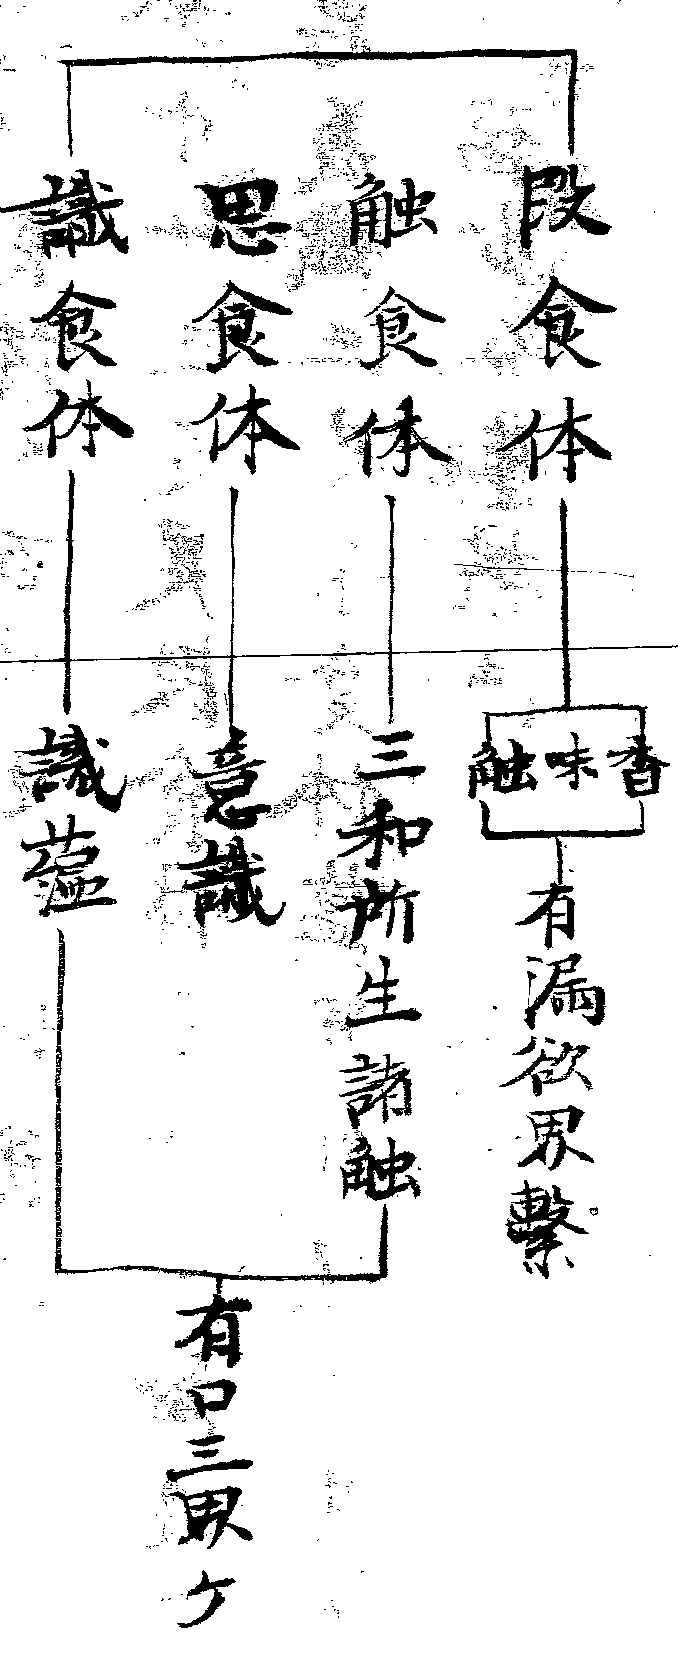 段食体
香味触
有漏欲界繋
触食体
三和所生諸触
思食体
意識
識食体
識蘊
有口三界ケ